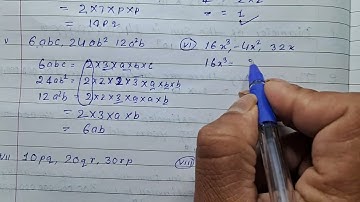 = 2 × 7 × p × p
= 14pq
= 1
v 6abc, 24ab² 12a²b
6abc = 2 × 3 × a × b × c
24ab² = 2 × 2 × 2 × 3 × a × b × b
12a²b = 2 × 2 × 3 × a × a × b
= 2 × 3 × a × b
= 6ab
vi) 16x³, -4x², 32x
16x³ =
vii 10pq, 20qr, 30rp
viii)